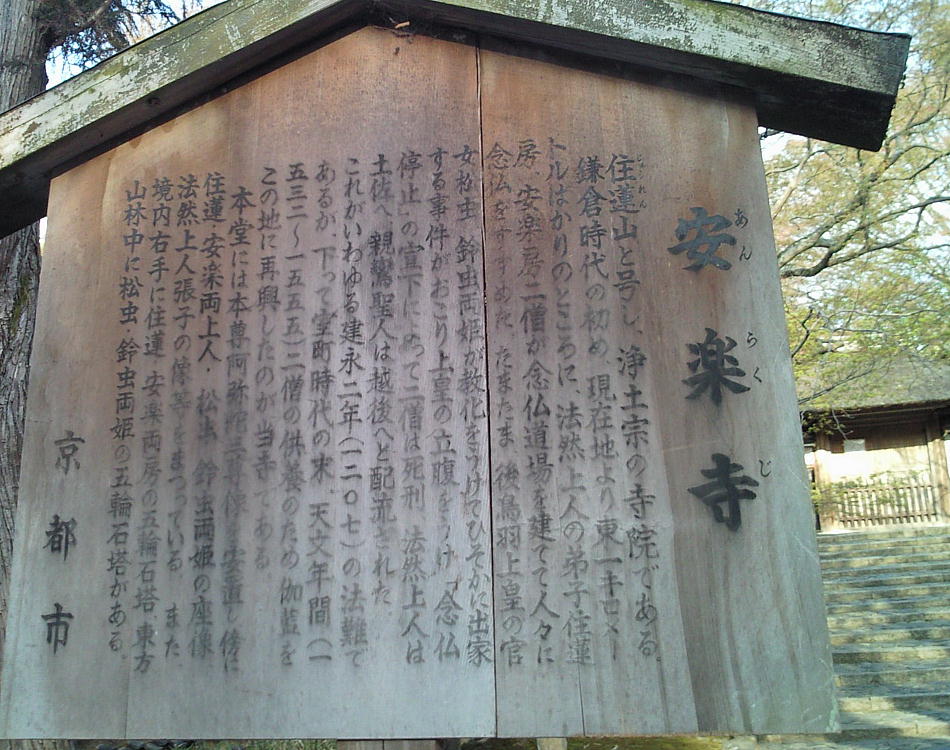 安楽寺
あんらくじ
住蓮山と号し、浄土宗の寺院である。
じゅうれん
鎌倉時代の初め、現在地より東一キロメー
トルばかりのところに、法然上人の弟子住蓮
房、安楽房二僧が念仏道場を建てて人々に
念仏をすすめた。たまたま、後鳥羽上皇の官
女松虫、鈴虫両姫が教化をうけてひそかに出家
する事件がおこり上皇の立腹をうけ「念仏
停止」の宣下によって二僧は死刑、法然上人は
土佐へ、親鸞聖人は越後へと配流された。
これがいわゆる建永二年(一二〇七)の法難で
あるが、下って室町時代の末、天文年間(一
五三二~一五五五)二僧の供養のための伽藍を
この地に再興したのが当寺である。
本堂には本尊阿弥陀三尊像を安置し、傍に
住蓮・安楽両上人・松虫、鈴虫両姫の座像
法然上人張子の像等をまつっている。また
境内右手に住蓮、安楽両房の五輪石塔、東方
山林中に松虫、鈴虫両姫の五輪石塔がある。
京都市